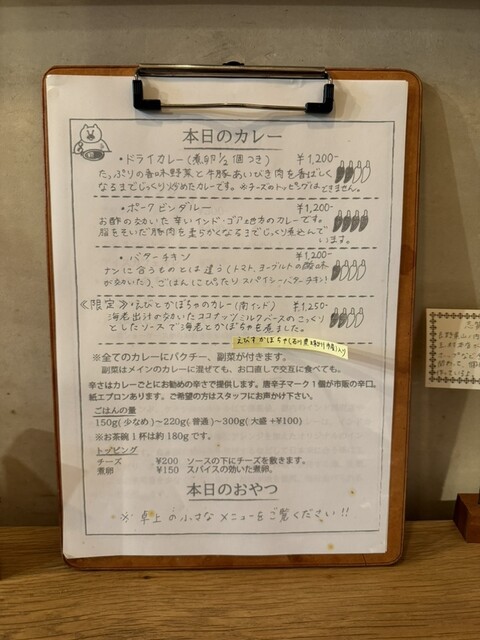 本日のカレー
・ドライカレー(煮卵½個つき) ¥1,200-
たっぷりの香味野菜と牛豚あいびき肉を香ばしく
なるまでじっくり炒めたカレーです。※チーズのトッピングはできません。
・ポークビンダルー ¥1,200-
お酢の効いた辛いインド・ゴア地方のカレーです。
脂をもいだ豚肉を柔らかくなるまでじっくり煮込んで
います。
・バターチキン ¥1,200-
ナンに合うものとは違う(トマト、ヨーグルトの酸味
が効いた)、ごはんにぴったりスパイシーバターチキン!
《限定》・えびとかぼちゃのカレー(南インド) ¥1,250-
海老出汁の効いたココナッツミルクベースのこっくり
としたソースで海老とかぼちゃを煮ました。
※全てのカレーにパクチー、副菜が付きます。
副菜はメインのカレーに混ぜても、お口直しで交互に食べても。
辛さはカレーごとにお勧めの辛さで提供します。唐辛子マーク1個が市販の辛口。
紙エプロンあります。ご希望の方はスタッフにお声掛け下さい。
ごはんの量
150g(少なめ)~220g(普通)~300g(大盛+¥100)
※お茶碗1杯は約180gです。
トッピング
チーズ ¥200 ソースの下にチーズを敷きます。
煮卵 ¥150 スパイスの効いた煮卵。
本日のおやつ
※卓上の小さなメニューをご覧ください!!